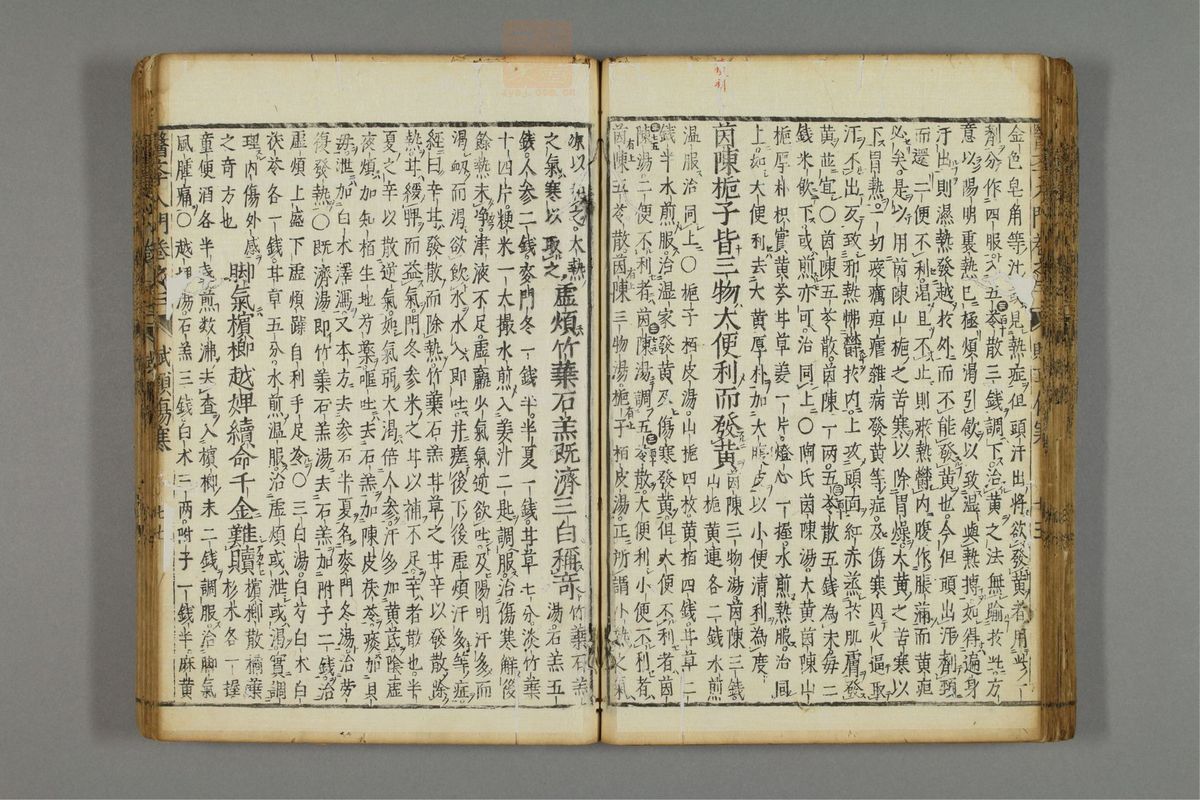 金色皂角等汁或見熱症但頭汗出將欲發黃者用此一
劑分作四服入五苓散三錢調下治黃之法無踰於此方
意以陽明裏熱已極煩渴引飲以致温與熱搏如得遍身
汗出則濕熱發越於外而不能發黃也今但頭出汗劑頸
而還二便不利渴且不止則瘀熱鬱內腹作脹滿而黃疸
必矣是以用茵陳山梔之苦寒以除胃燥大黃之苦寒以
下胃熱一切疫癘疸瘧雜病發黃等症及傷寒因火逼取
汗不出又致邪熱怫鬱於內上攻頭面紅赤蒸於肌膚發
黃並宜〇茵陳五苓散茵陳一兩五苓散五錢為末每二
錢米飲下或煎亦可治同上〇陶氏茵陳湯大黃茵陳山
梔厚朴枳實黃芩甘草姜一片燈心一握水煎熱服治同
上如大便利去大黃厚朴加大腹皮以小便清利為度
茵陳梔子皆三物大便利而發黃
茵陳三物湯茵陳三錢
山梔黃連各二錢水煎
温服治同上〇梔子栢皮湯山梔四枚黃栢四錢甘草二
錢半水煎服治濕家發黃及傷寒發黃但大便不利者茵
陳湯二便不利者茵陳湯調五苓散大便利小便不利者
茵陳五苓散茵陳三物湯梔子栢皮湯正所謂小熱之氣
涼以和之大熱
之氣寒以取之
虛煩竹葉石羔既濟三白稱奇
竹葉石羔
湯石羔五
錢人參二錢麥門冬一錢半半夏一錢甘草七分淡竹葉
十四片粳米一大撮水煎入姜汁二匙調服治傷寒解後
餘熱未净津液不足虛羸少氣氣逆欲吐及陽明汗多而
渴衂而渴欲飲水水入即吐并瘥後下後虛煩汗多等症
經曰辛甘發散而除熱竹葉石羔甘草之甘辛以發散除
熱甘緩脾而益氣門冬參米之甘以補不足辛者散也半
夏之辛以散逆氣如氣弱大渴倍人參汗多加黃芪陰虛
夜煩加知栢生地芍藥嘔吐去石羔加陳皮茯苓痰加貝
母泄加白水澤瀉又本方去參石半夏名麥門冬湯治勞
復發熱〇既濟湯即竹葉石羔湯去石羔加附子二錢治
虛煩上盛下虛煩躁自利手足冷〇三白湯白芍白术白
茯苓各一錢甘草五分水煎温服治虛煩或泄或渴實調
理內傷外感
之奇方也
脚氣檳榔越婢續命千金難贖
檳榔散橘葉
杉木各一握
童便酒各半盞煎數沸去查入檳榔末二錢調服治脚氣
風腫痛〇越婢湯石羔三錢白术二兩附子一錢半麻黃